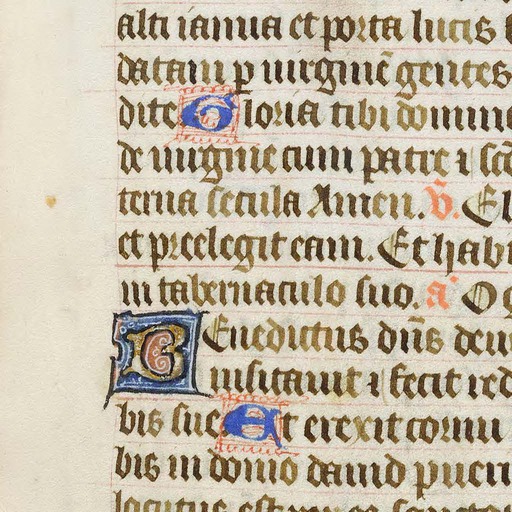 alti ianua et porta lucis
datam p̲ uirginē gentes
dite Gloria tibi domine
de uirgine cum patre ⁊ sc̄o
terna secula Amen. v̄. El
et preelegit eam. Et habi
in tabernaculo suo. a͛ O g
Benedictus dn̄s deus
uisitauit ⁊ fecit red
bis sue Et erexit cornu
bis in domo dauid pueri
locutus est per os sanctor